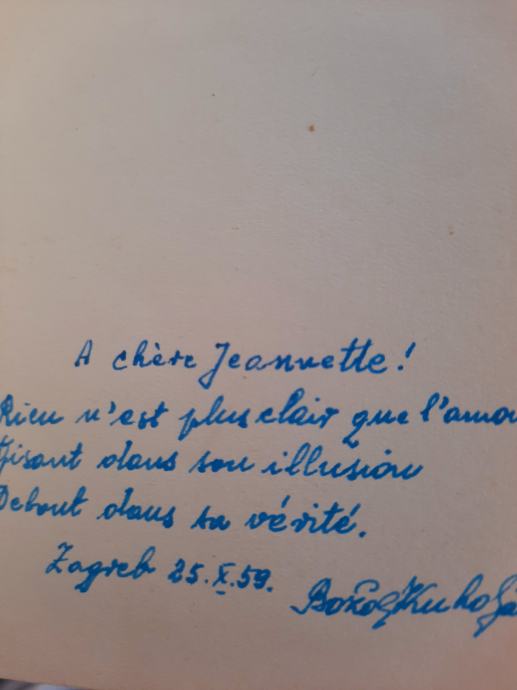 A chère Jeannette!
Rien n'est plus clair que l'amo
Gisant dans son illusion
Debout dans sa vérité.
Zagreb 25.X.59.